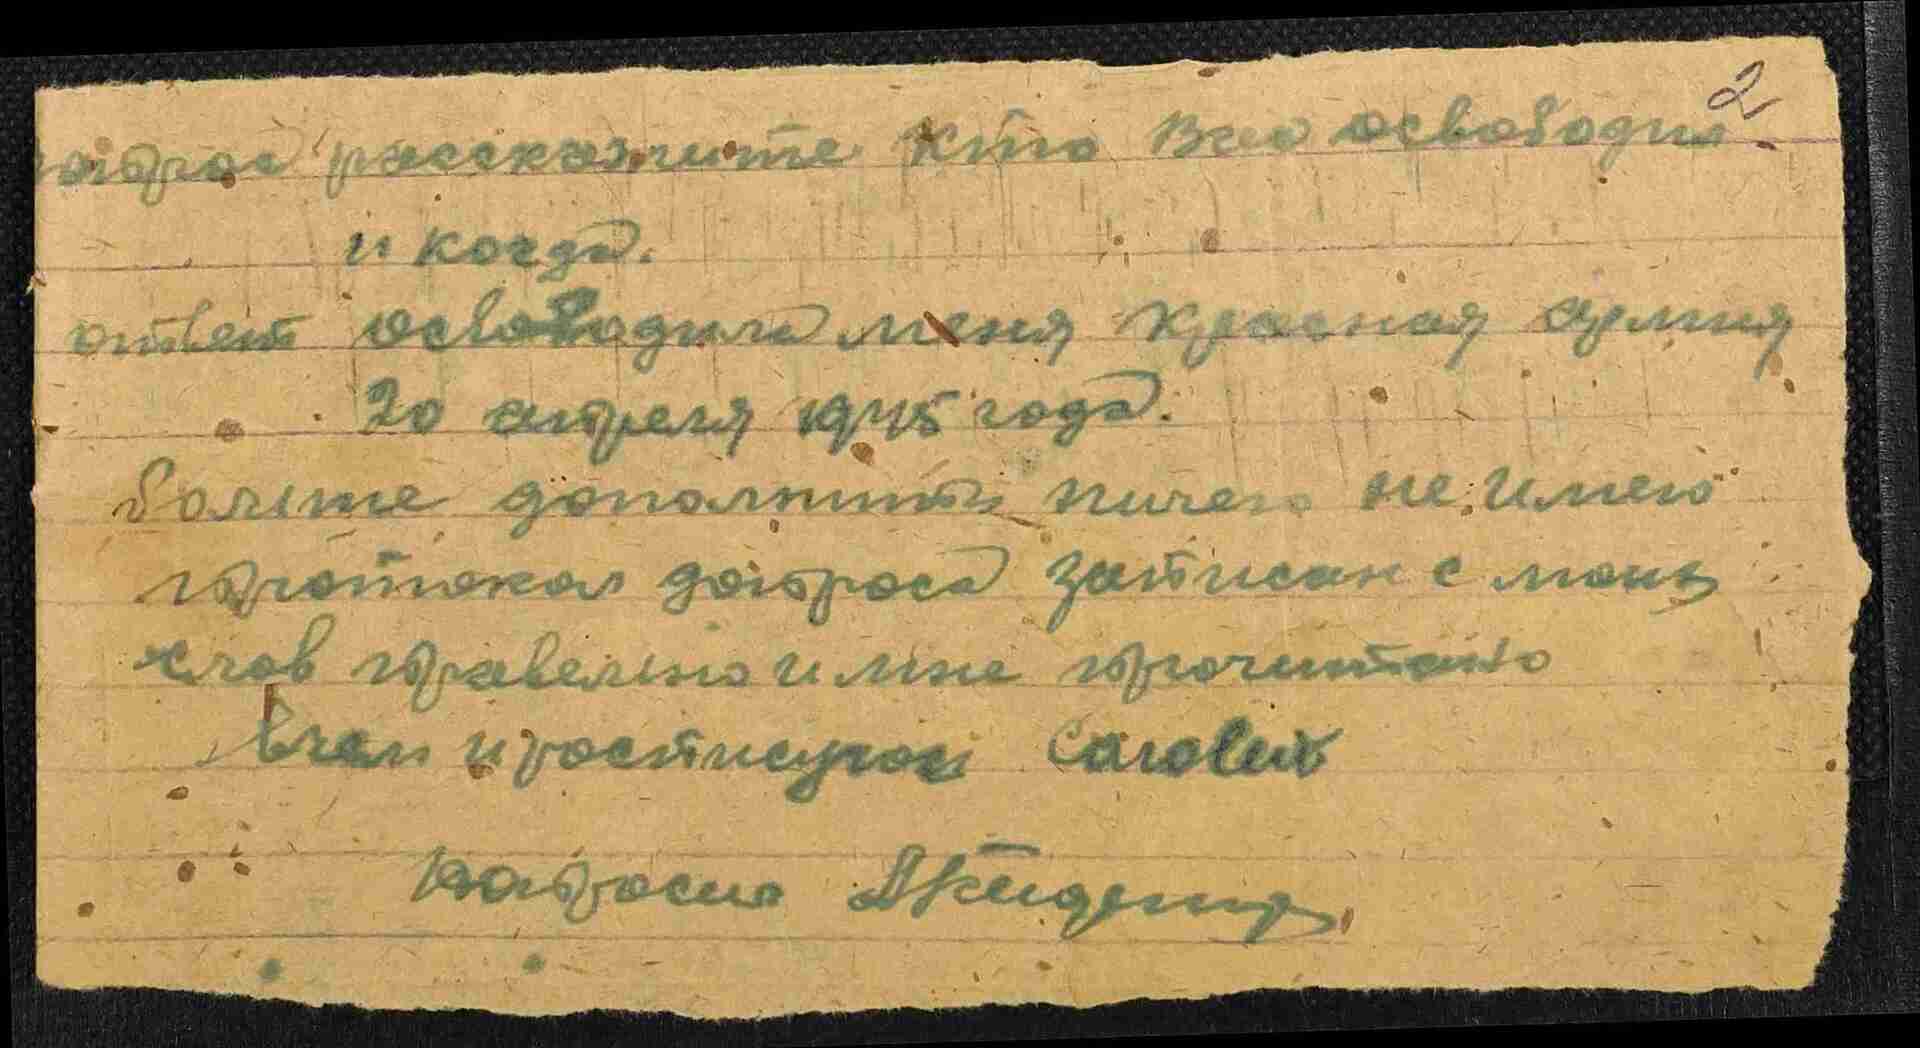 2
вопрос рассказчите кто Вас освободил
и когда.
ответ освободила меня красная армия
20 апреля 1945 года.
больше дополнить ничего не имею
протокол допроса записан с моих
слов правельно и мне прочитано
в чем и росписуюсь
допросил